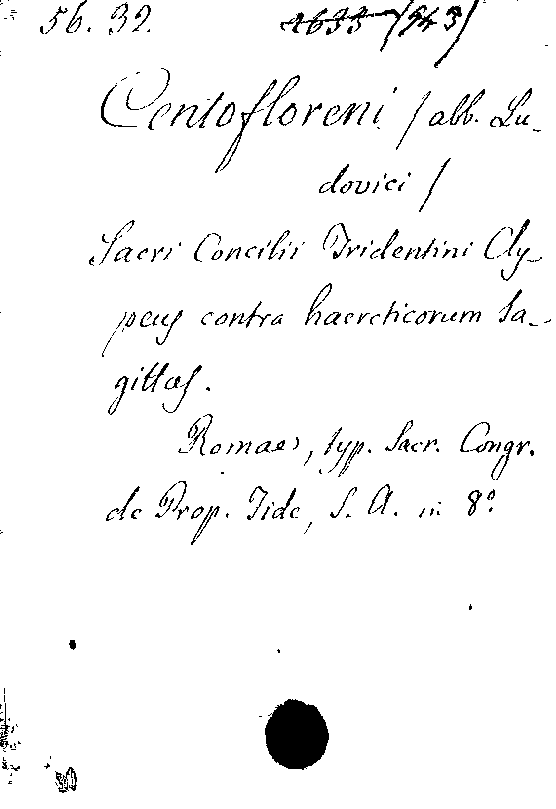 56. 39.
Centofloreni / abb. Lu-
dovici /
Sacri Concilii Tridentini Cly-
peus contra haereticorum sa-
gittas.
Romae, typ. Sacr. Congr.
de Prop. Fide, S. A. in 8º